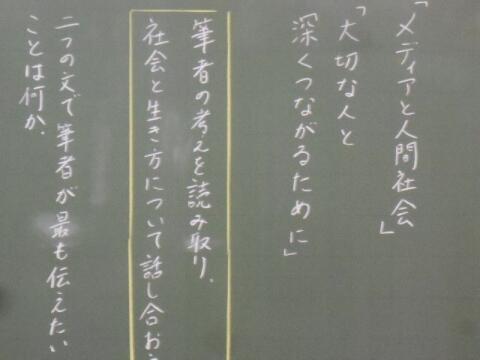 「メディアと人間社会」
「大切な人と
深くつながるために」
筆者の考えを読み取り、
社会と生き方について話し合おう
二つの文で筆者が最も伝えたい
ことは何か。